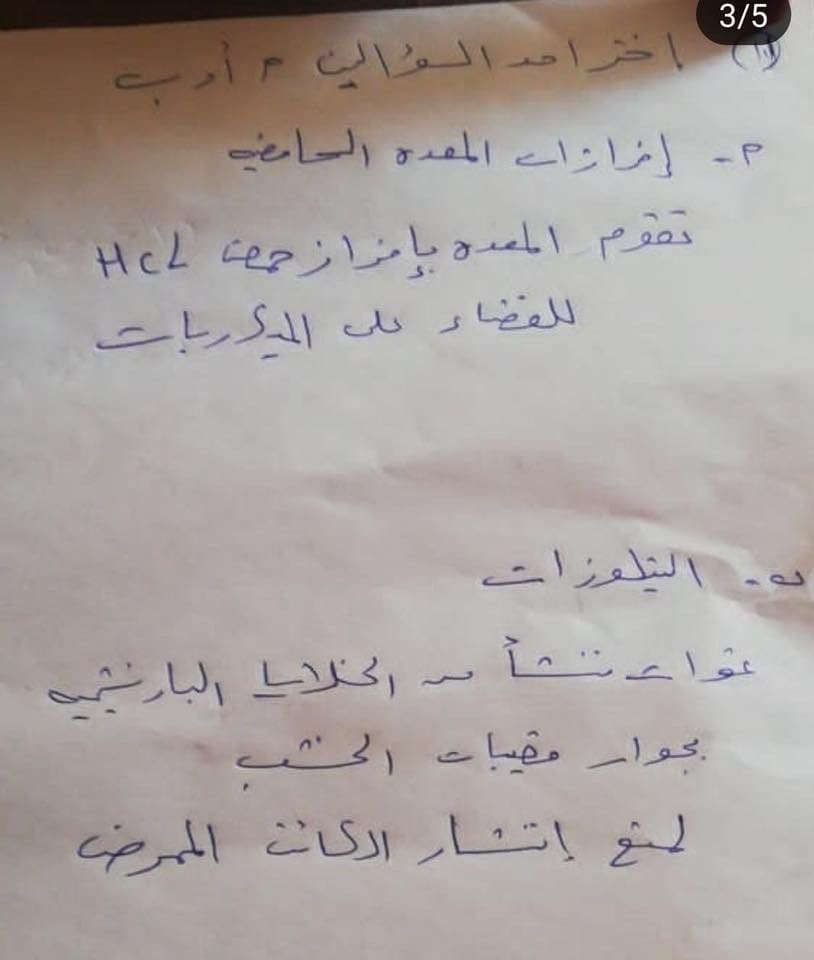 3/5
(١١) إختر احد السؤالين أ أو ب
أ - إفرازات المعده الحامضيه
تقوم المعده بإفراز حمض HCL
للقضاء على الميكروبات
ب - التيلوزات
نموات تنشأ من الخلايا البارنشيميه
بجوار قصيبات الخشب
لمنع إنتشار الكائن الممرض